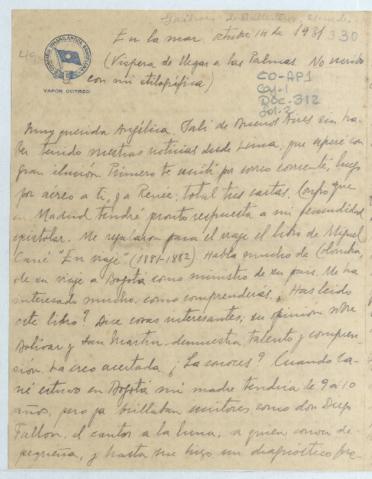 En la mar, octubre 14 de 1931 330
(Víspera de llegar a las Palmas. No escribo
con mi estilográfica)
CO-AP1
Caj-1
DOC-312
fol-2
VAPOR
Muy querida Angélica. Salí de Buenos Aires sin ha-
ber tenido vuestras noticias desde Lima, que esperé con
gran ilusión. Primero te escribí por correo corriente, luego
por aereo a ti, y a Renée, total tres cartas. Confío que
en Madrid tendré pronto respuesta a mi fecundidad
epistolar. Me regalaron para el viaje el libro de Miguel
Cané "En viaje" (1881-1882) Habla mucho de Colombia,
de su viaje a Bogotá como ministro de su país. Me ha
interesado mucho, como comprenderás. ¿Has leído
este libro? Dice cosas interesantes; su opinión sobre
Bolívar y San Martín demuestra talento y compren-
sión, la creo acertada. ¿La conoces? Cuando Ca-
né estuvo en Bogotá mi madre tendría de 9 a 10
años, pero ya brillaban escritores como don Diego
Fallon, el cantor a la luna, a quien conocí de
pequeña, y hasta me hizo un diagnóstico fre-